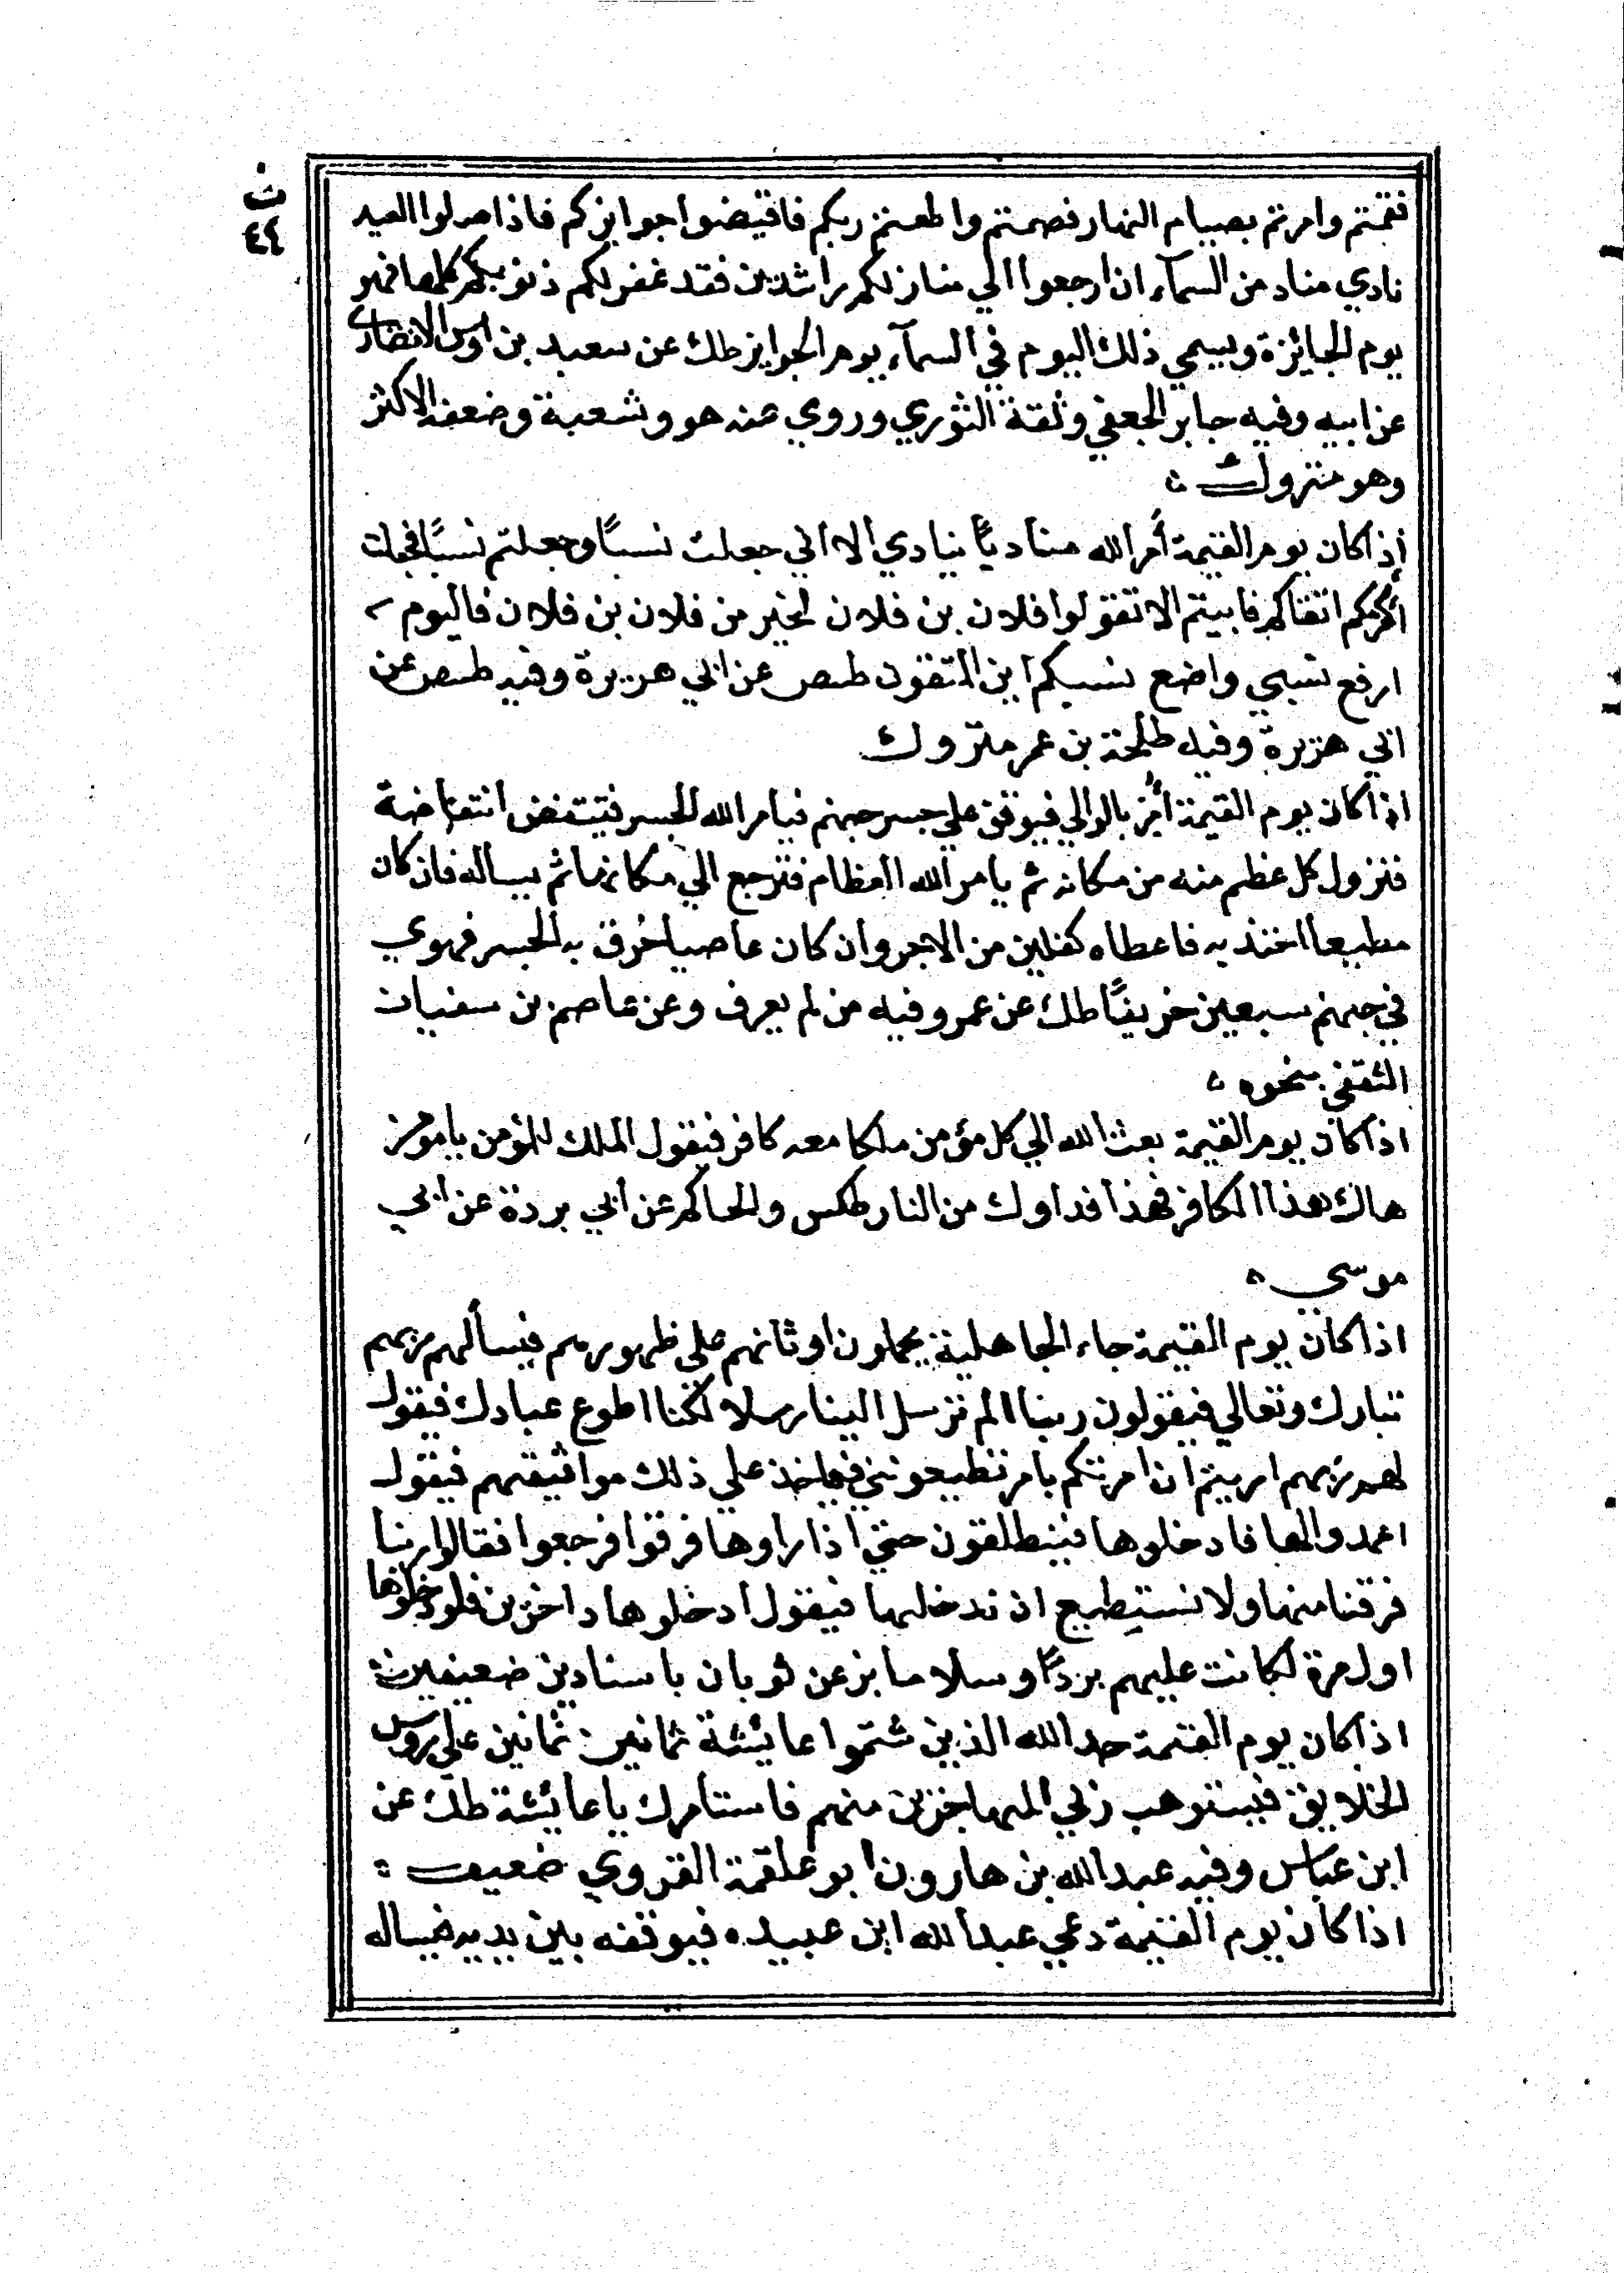 ث
٤٤
فقمتم وامرتم بصيام النهار فصمتم واطعتم ربكم فاقبضوا جوايزكم فاذا صلوا العيد
نادي مناد من السمآء ان ارجعوا الي منازلكم راشدين فقد غفر لكم ذنوبكم كلها فهو
يوم الجائزة ويسمي ذلك اليوم في السمآء يوم الجوايز طك عن سعيد بن اوس الانصاري
عن ابيه وفيه جابر الجعفي وثقة الثوري وروي عنه هو وشعبة وضعفه الاكثر
وهو متروك
اذا كان يوم القيمة أمر الله مناديًا ينادي الا اني جعلت نسبًا وجعلتم نسبًا فجعلت
أكرمكم اتقاكم فابيتم الا تقولوا فلان بن فلان لخير من فلان بن فلان فاليوم
ارفع نسبي واضع نسبكم اين المتقون طس طص عن ابي هريرة وفيه طص عن
ابي هريرة وفيه طلحة بن عمر متروك
اذا كان يوم القيمة أمر بالوالي فيوقف علي جسر جهنم فيامر الله الجسر فينتفض انتفاضة
فتزول كل عظم منه من مكانه ثم يامر الله العظام فترجع الي مكانها ثم يساله فان كان
مطيعا اخذ به فاعطاه كفلين من الاجر وان كان عاصيا خرق به الجسر فهوي
في جهنم سبعين خريفًا طك عن عمر وفيه من لم يعرف وعن عاصم بن سفيان
الثقفي بنحوه
اذا كان يوم القيمة بعث الله الي كل مؤمن ملكا معه كافر فيقول الملك للمؤمن يا مومن
هاك هذا الكافر فهذا فداوك من النار طكس والحاكم عن ابي بردة عن ابي
موسي
اذا كان يوم القيمة جاء الجاهلية يحملون اوثانهم علي ظهورهم فيسألهم ربهم
تبارك وتعالي فيقولون ربنا الم ترسل الينا رسلا لكنا اطوع عبادك فيقول
لهم ربهم ارييتم ان امرتكم بامر تطيعونني فياخذ علي ذلك مواثيقهم فيقول
اعمدوا لها فادخلوها فينطلقون حتي اذا راوها فرقوا فرجعوا فقالوا ربنا
فرقنا منها ولا نستطيع ان ندخلها فيقول ادخلوها داخرين فلو دخلوها
اول مرة لكانت عليهم بردًا وسلاما بز عن ثوبان باسنادين ضعيفين
اذا كان يوم القيمة حد الله الذين شتموا عايئشة ثمانين ثمانين علي روس
الخلايق فيستوهب ربي المهاجرين منهم فاستامرك يا عايئشة طك عن
ابن عباس وفيه عبد الله بن هارون ابو علقمة القروي ضعيف
اذا كان يوم القيمة دعي عبد الله ابن عبيده فيوقفه بين يديه فيساله